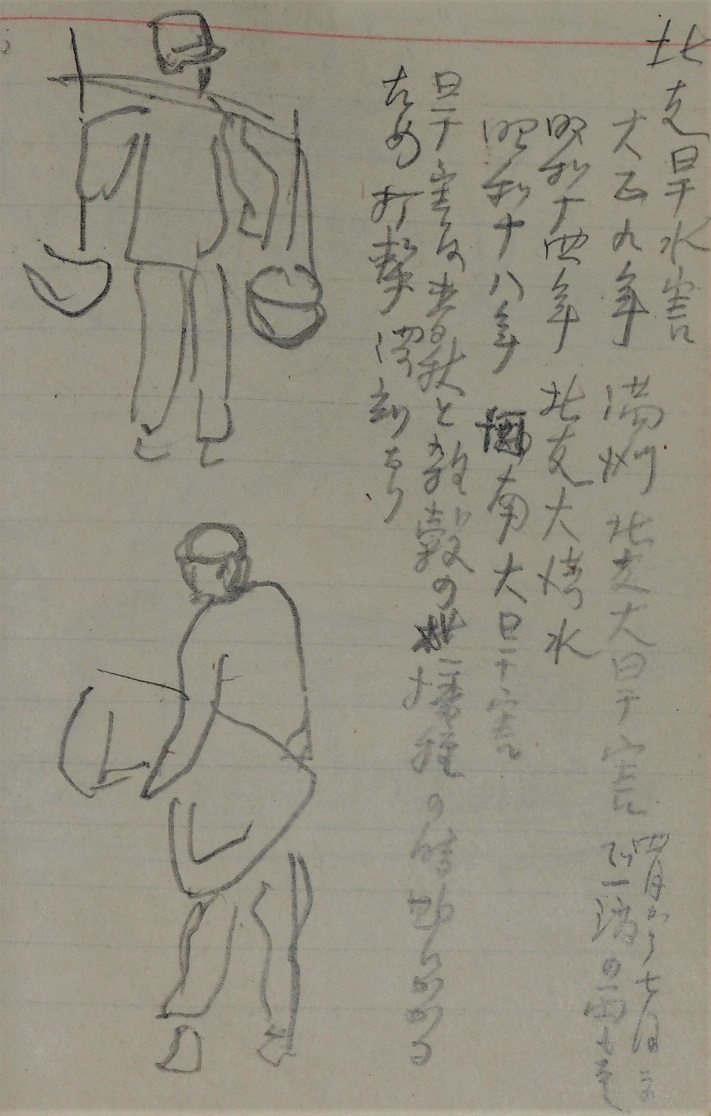 北支旱水害
大正九年 満州 北支大旱害 四月から七月まで
一滴の雨も
昭和十四年 北支大洪水
昭和十八年 河南大旱害
旱害は春秋と雑穀の播種の時期にかかる
ため打撃深刻なり